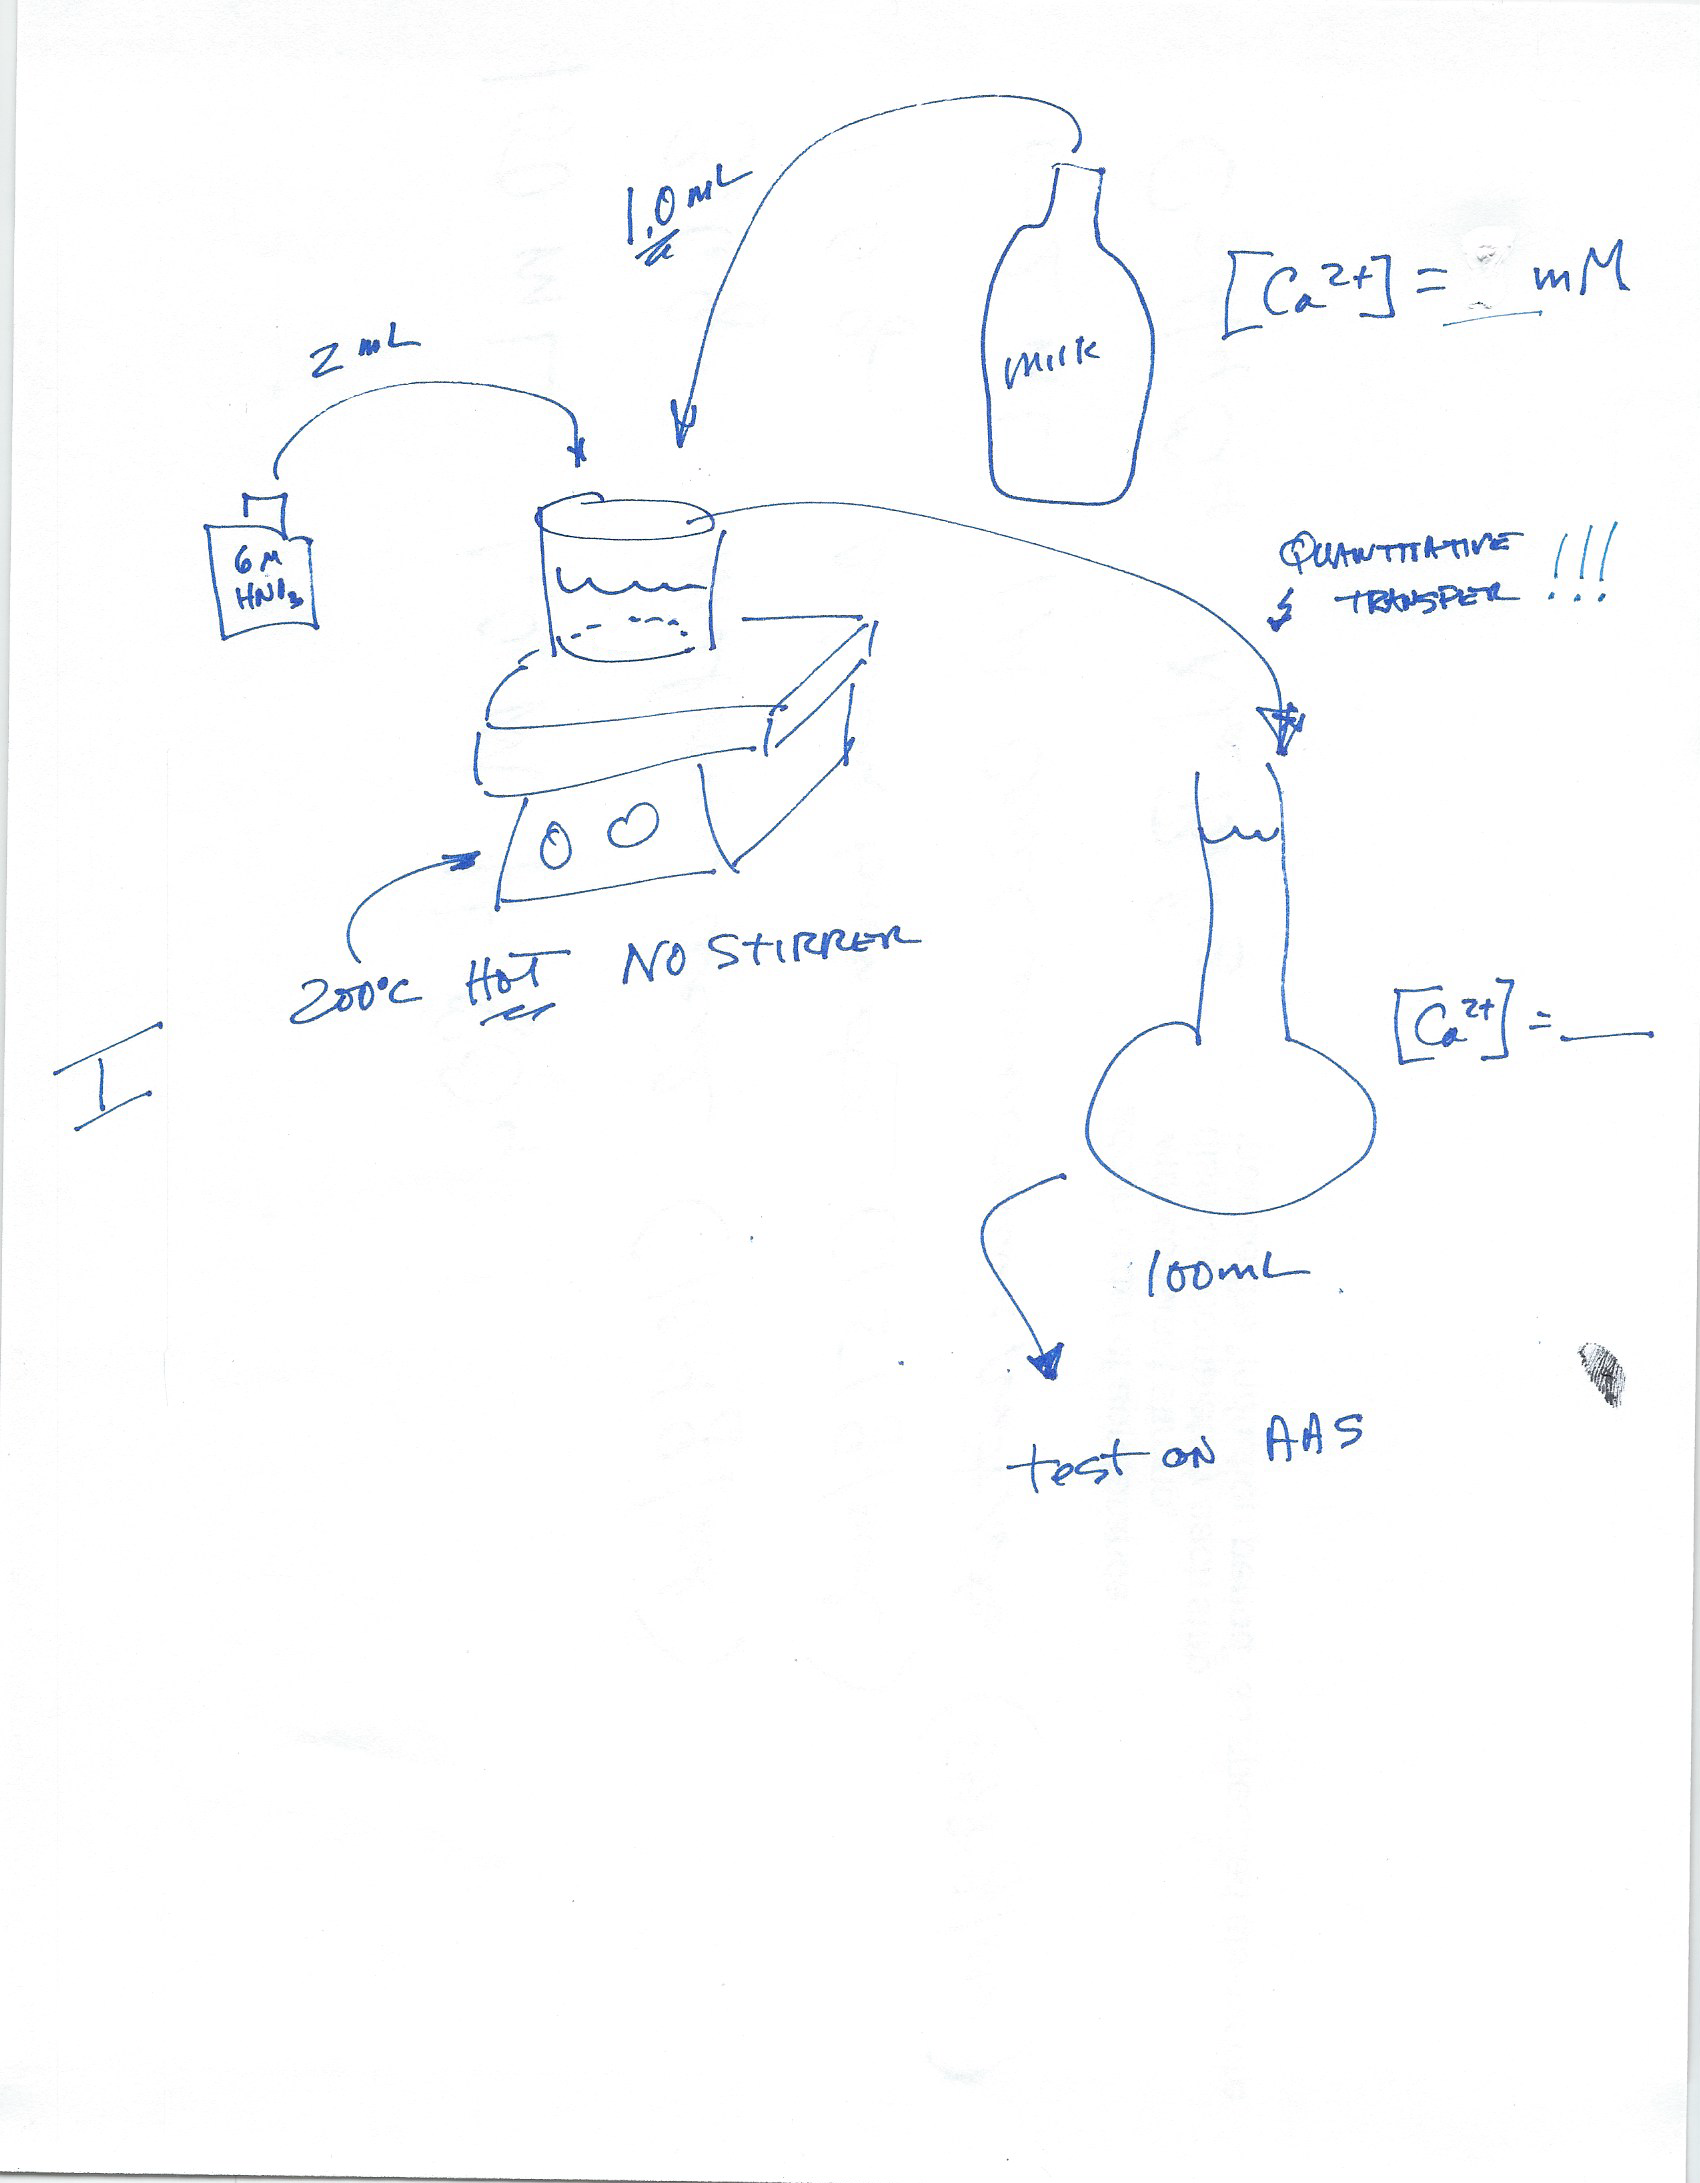 1.0 mL
[Ca²⁺] = __ mM
milk
2 mL
6 M
HNO₃
QUANTITATIVE !!!
TRANSFER
200°C HOT NO STIRRER
I
[Ca²⁺] = __
100mL
test on AAS